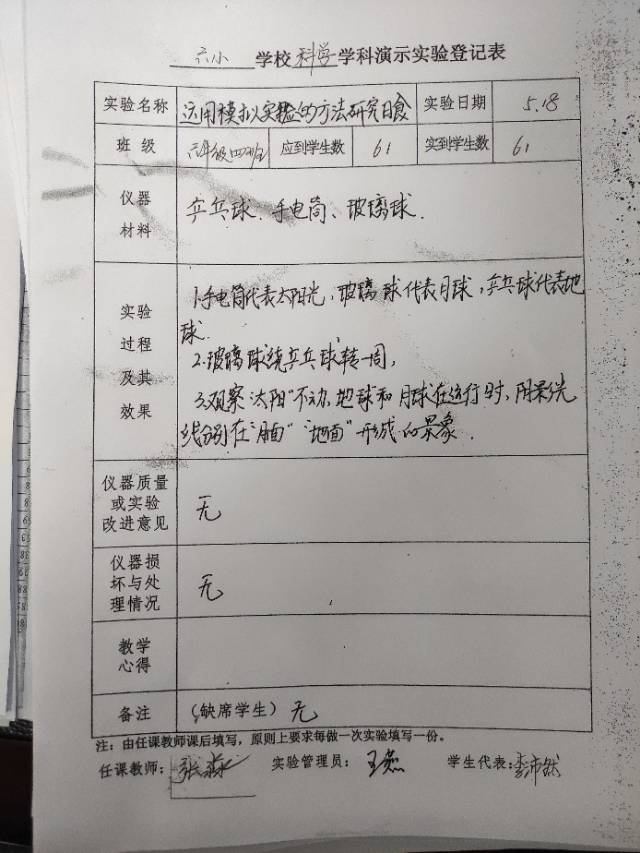 六小 学校 科学 学科演示实验登记表
实验名称 运用模拟实验的方法研究日食 实验日期 5.18
班 级 六年级四班 应到学生数 61 实到学生数 61
仪器
材料
乒乓球、手电筒、玻璃球.
实验
过程
及其
效果
1.手电筒代表太阳光,玻璃球代表月球,乒乓球代表地
球.
2.玻璃球绕乒乓球转一周,
3.观察"太阳"不动,地球和月球在运行时,阳光光
线分别在"月面""地面"形成的景象.
仪器质量
或实验
改进意见
无
仪器损
坏与处
理情况
无
教学
心得
备注 (缺席学生) 无
注:由任课教师课后填写,原则上要求每做一次实验填写一份。
任课教师: 张淼 实验管理员: 王燕 学生代表: 李沛然